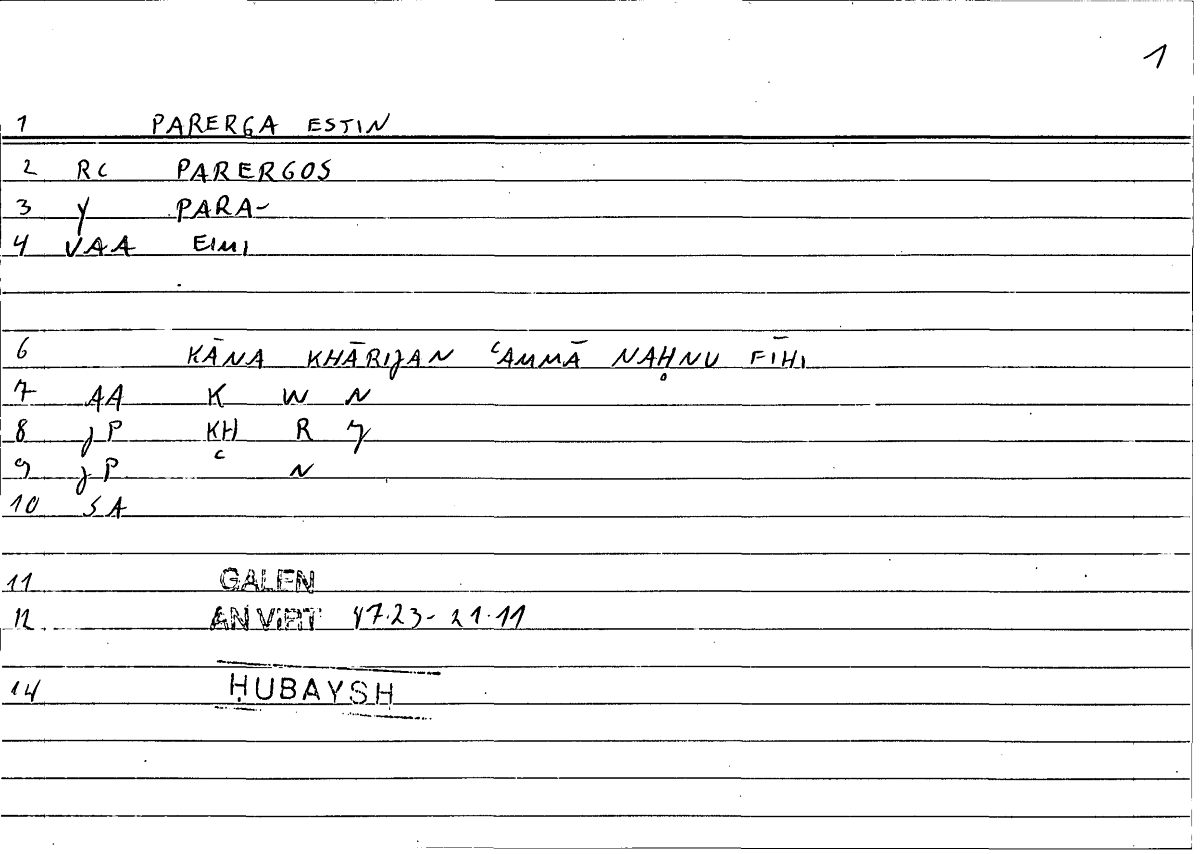 1
1 PARERGA ESTIN
2 RC PARERGOS
3 Y PARA-
4 VAA EIMI
6 KĀNA KHĀRIJAN ʿAMMĀ NAḤNU FĪHI
7 AA K W N
8 JP KH R J
9 JP ʿ N
10 SA
11 GALEN
12 AN VIRT 47.23-21.11
14 ḤUBAYSH